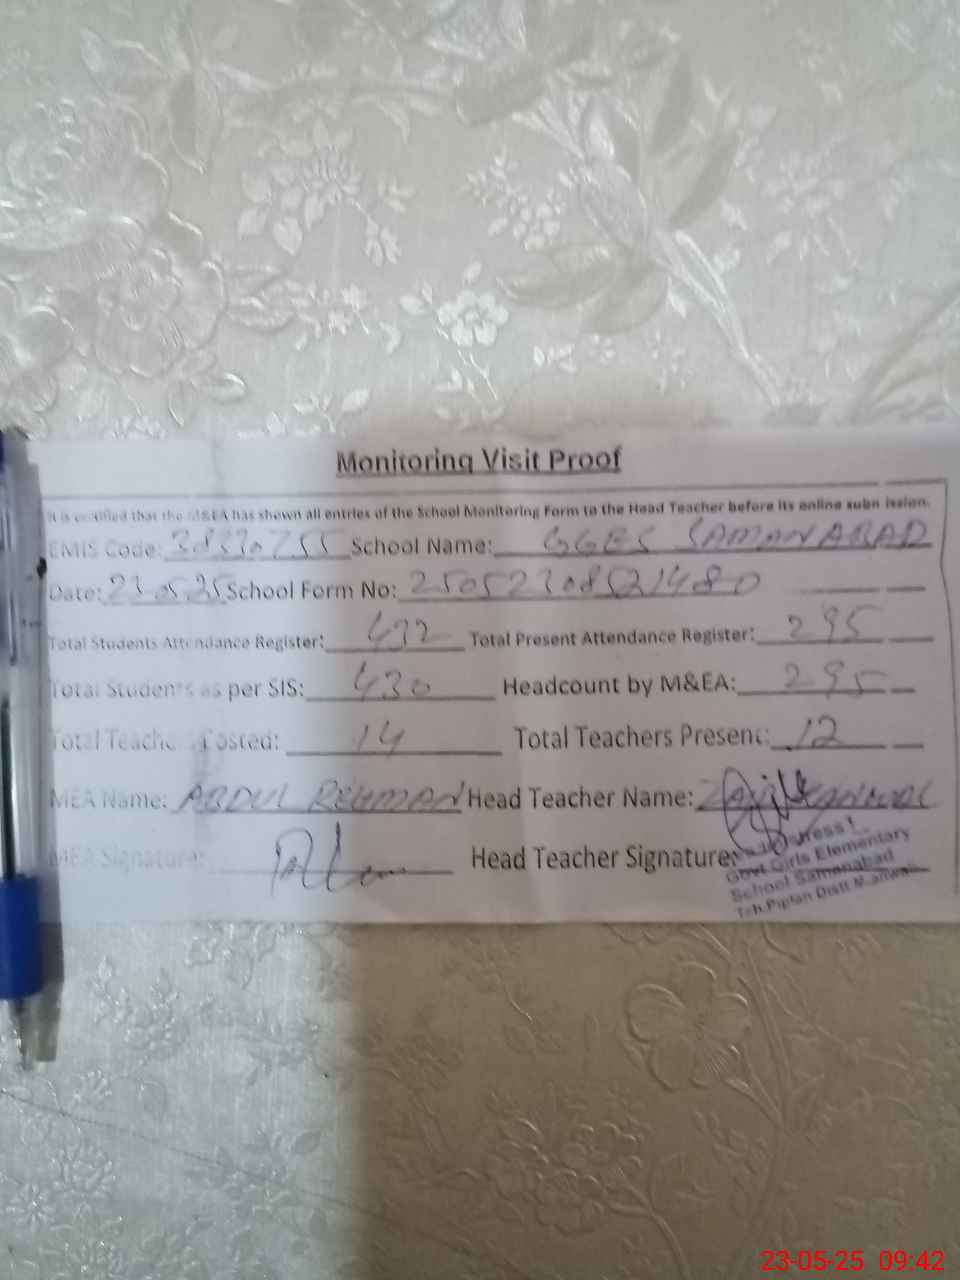 Monitoring Visit Proof
It is certified that the M&EA has shown all entries of the School Monitoring Form to the Head Teacher before its online submission.
EMIS Code: 38330755 School Name: GGES SAMANABAD
Date: 230525 School Form No: 25052308521480
Total Students Attendance Register: 432 Total Present Attendance Register: 295
Total Students as per SIS: 430 Headcount by M&EA: 295
Total Teachers Posted: 14 Total Teachers Present: 12
MEA Name: ABDUL REHMAN Head Teacher Name:
MEA Signature: Head Teacher Signature:
Govt Girls Elementary
School Samanabad
Teh.Piplan Distt
23-05-25 09:42